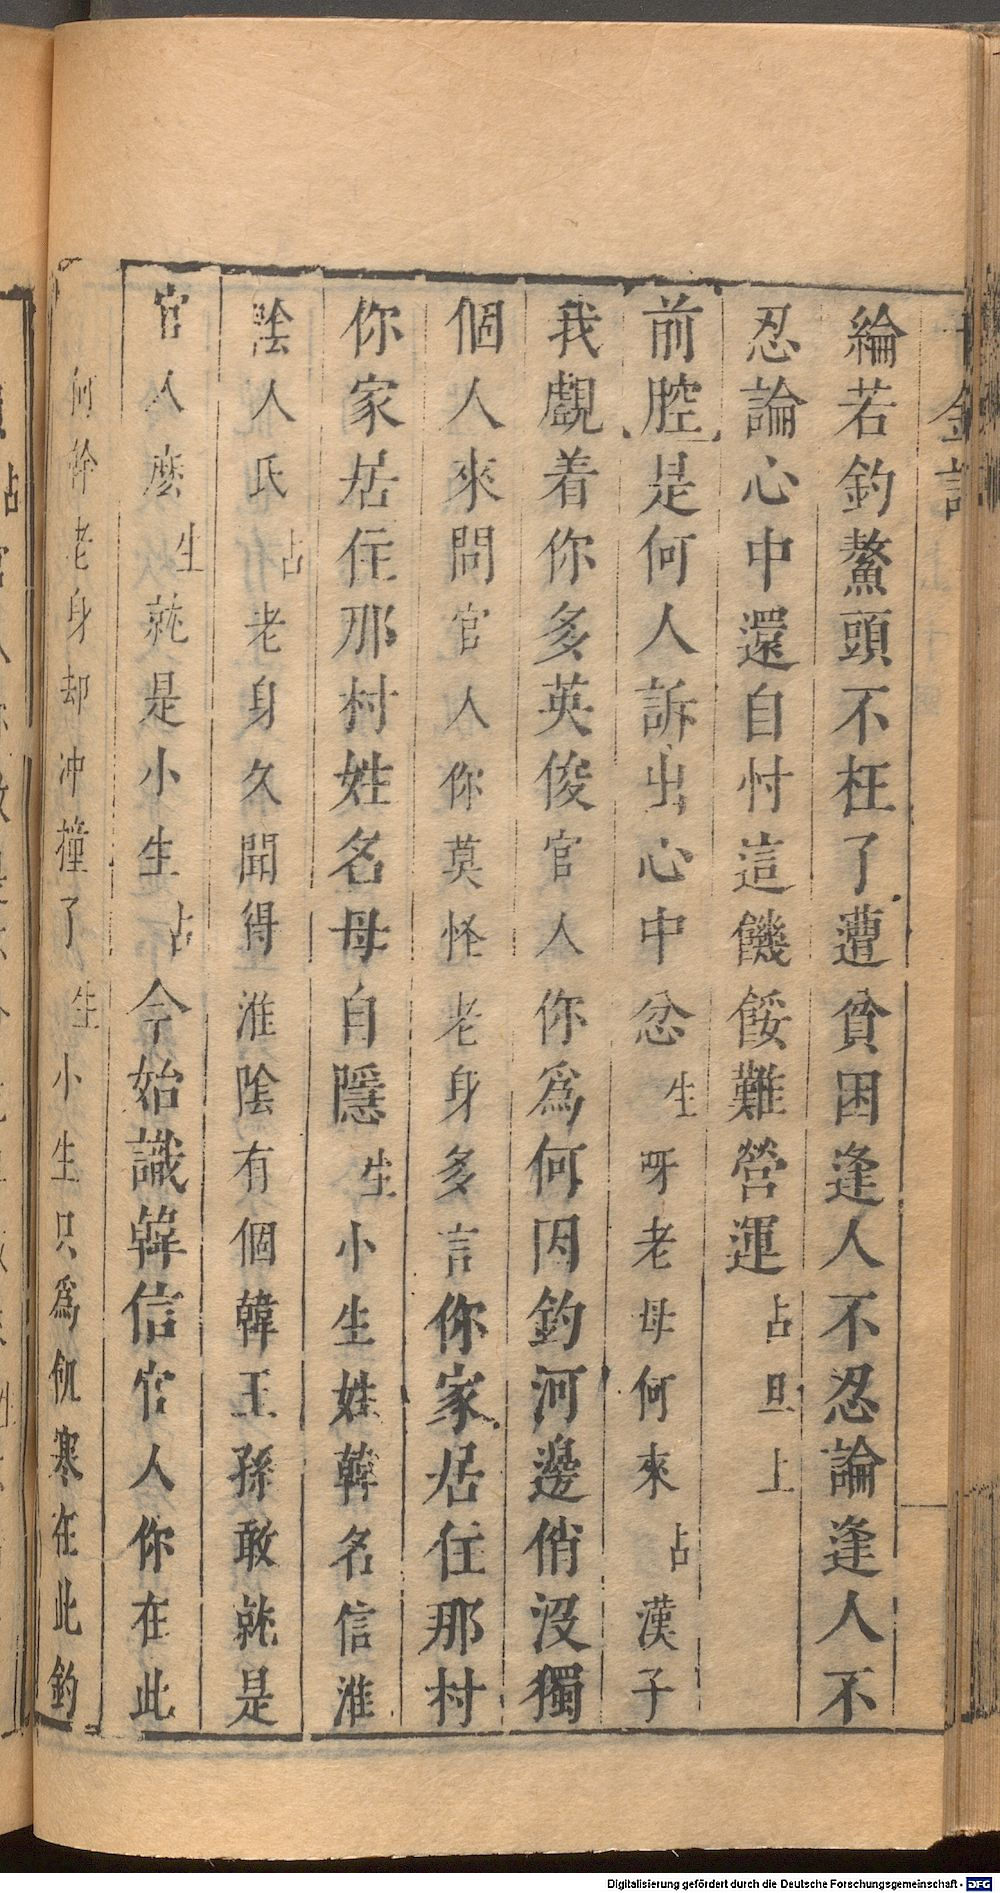 千金記
綸若釣鰲頭不枉了遭貧困逢人不忍論逢人不
忍論心中還自忖這饑餒難營運占旦上
前腔是何人訴出心中忿生呀老母何來占漢子
我覷着你多英俊官人你為何因釣河邊俏沒獨
個人來問官人你莫怪老身多言你家居住那村
你家居住那村姓名母自隱生小生姓韓名信淮
陰人氏占老身久聞得淮陰有個韓王孫敢就是
官人麽生就是小生占今始識韓信官人你在此
何幹老身却冲撞了生小生只為飢寒在此釣
Digitalisierung gefördert durch die Deutsche Forschungsgemeinschaft - DFG